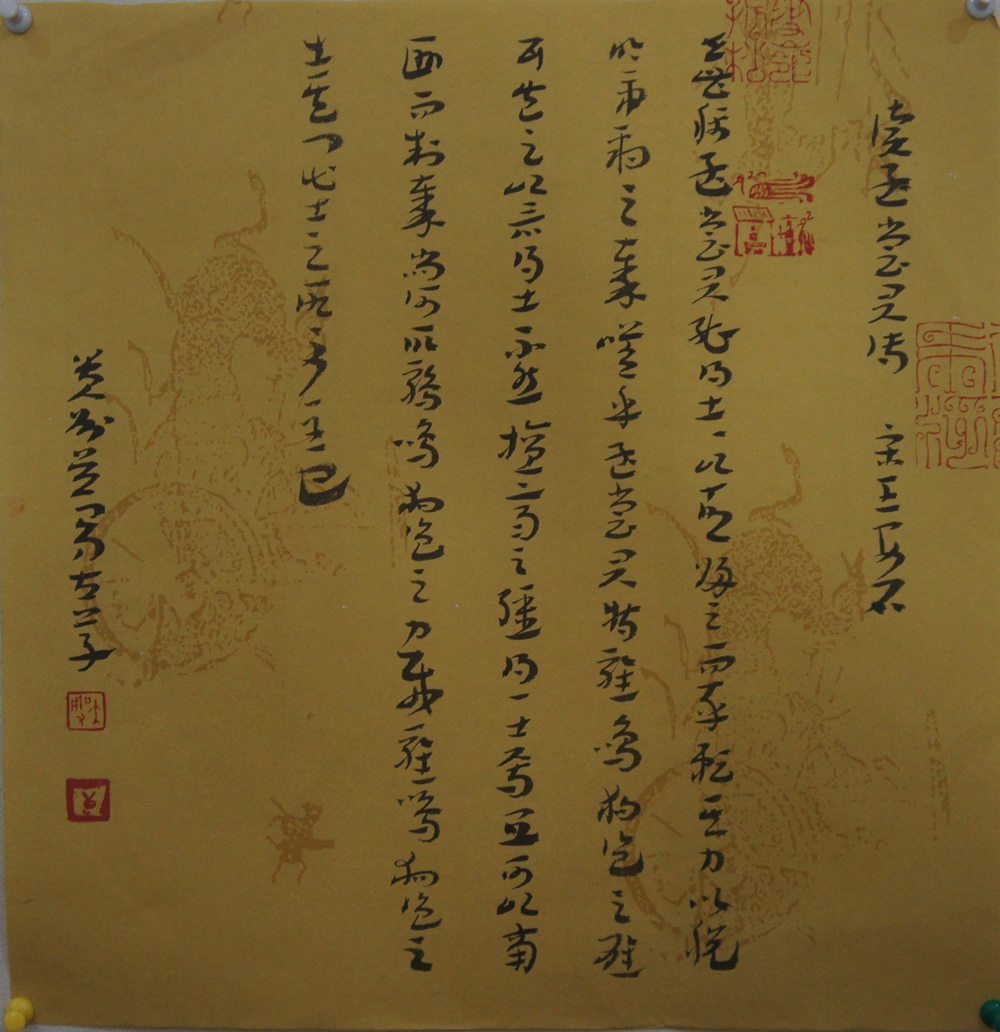 讀孟嘗君傳 宋 王安石
世皆稱孟嘗君能得士士以故歸之而卒賴其力以脫
於虎豹之秦嗟乎孟嘗君特雞鳴狗盜之雄
耳豈足以言得士不然擅齊之強得一士焉宜可以南
面而制秦尚何取雞鳴狗盜之力哉雞鳴狗盜之
出其門此士之所以不至也